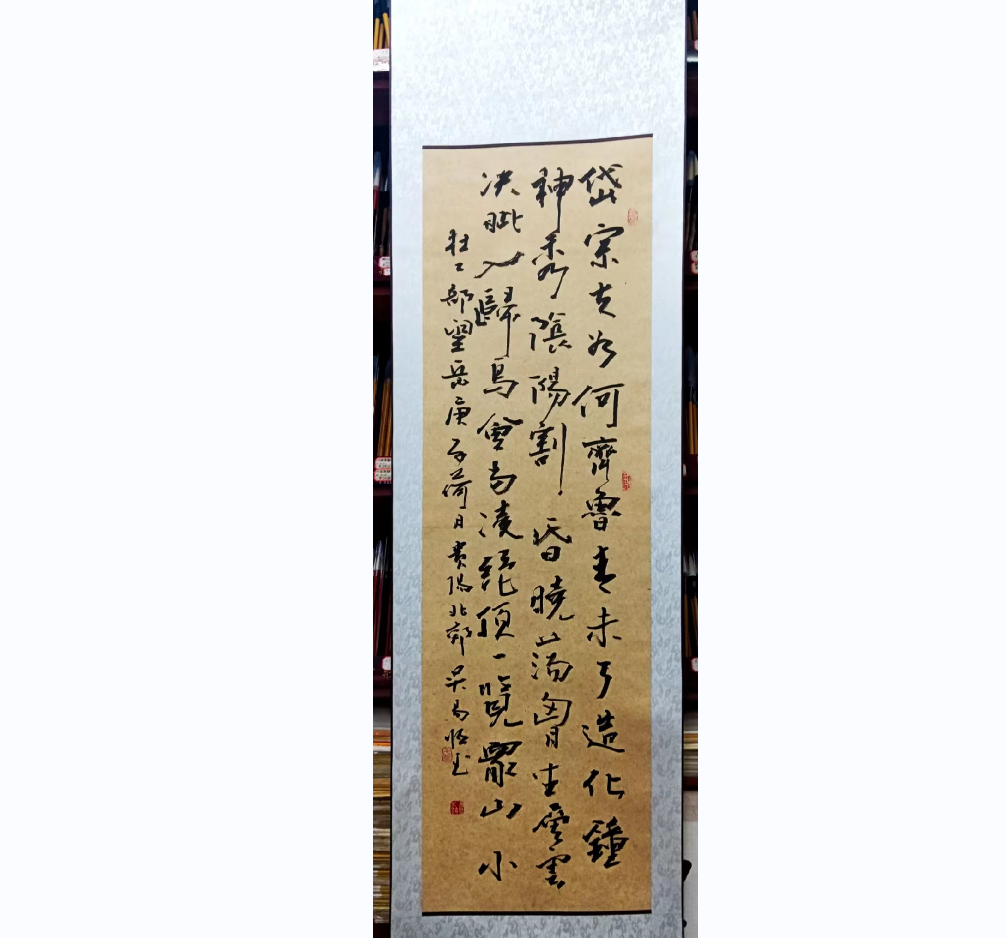 岱宗夫如何齊魯青未了造化鍾
神秀陰陽割昏曉蕩胸生層雲
决眦入歸鳥會當凌絕頂一覽眾山小
杜工部望岳庚子荷月貴陽北郊吴